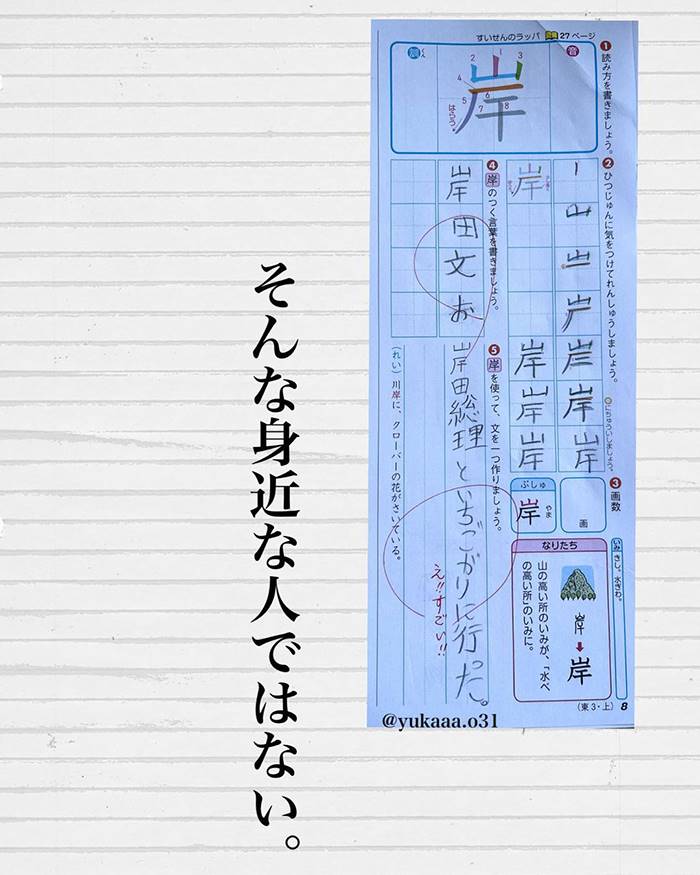 すいせんのラッパ 27ページ
❶ 読み方を書きましょう。
音
訓
くん
岸
1
2
3
4
5
6
7
8
はらう
❷ ひつじゅんに気をつけてれんしゅうしましょう。
にちゅういしましょう。
岸
岸
岸
岸
岸
岸
岸
❸ 画数
画
ぶしゅ
岸
やま
いみ きし。水ぎわ。
なりたち
山の高い所のいみが、「水べ
の高い所」のいみに。
岸
(東3・上) 8
❹ 岸のつく言葉を書きましょう。
岸田文お
❺ 岸を使って、文を一つ作りましょう。
岸田総理といちごがりに行った。
え!!すごい!!
(れい) 川岸に、クローバーの花がさいている。
@yukaaa.o31
そんな身近な人ではない。